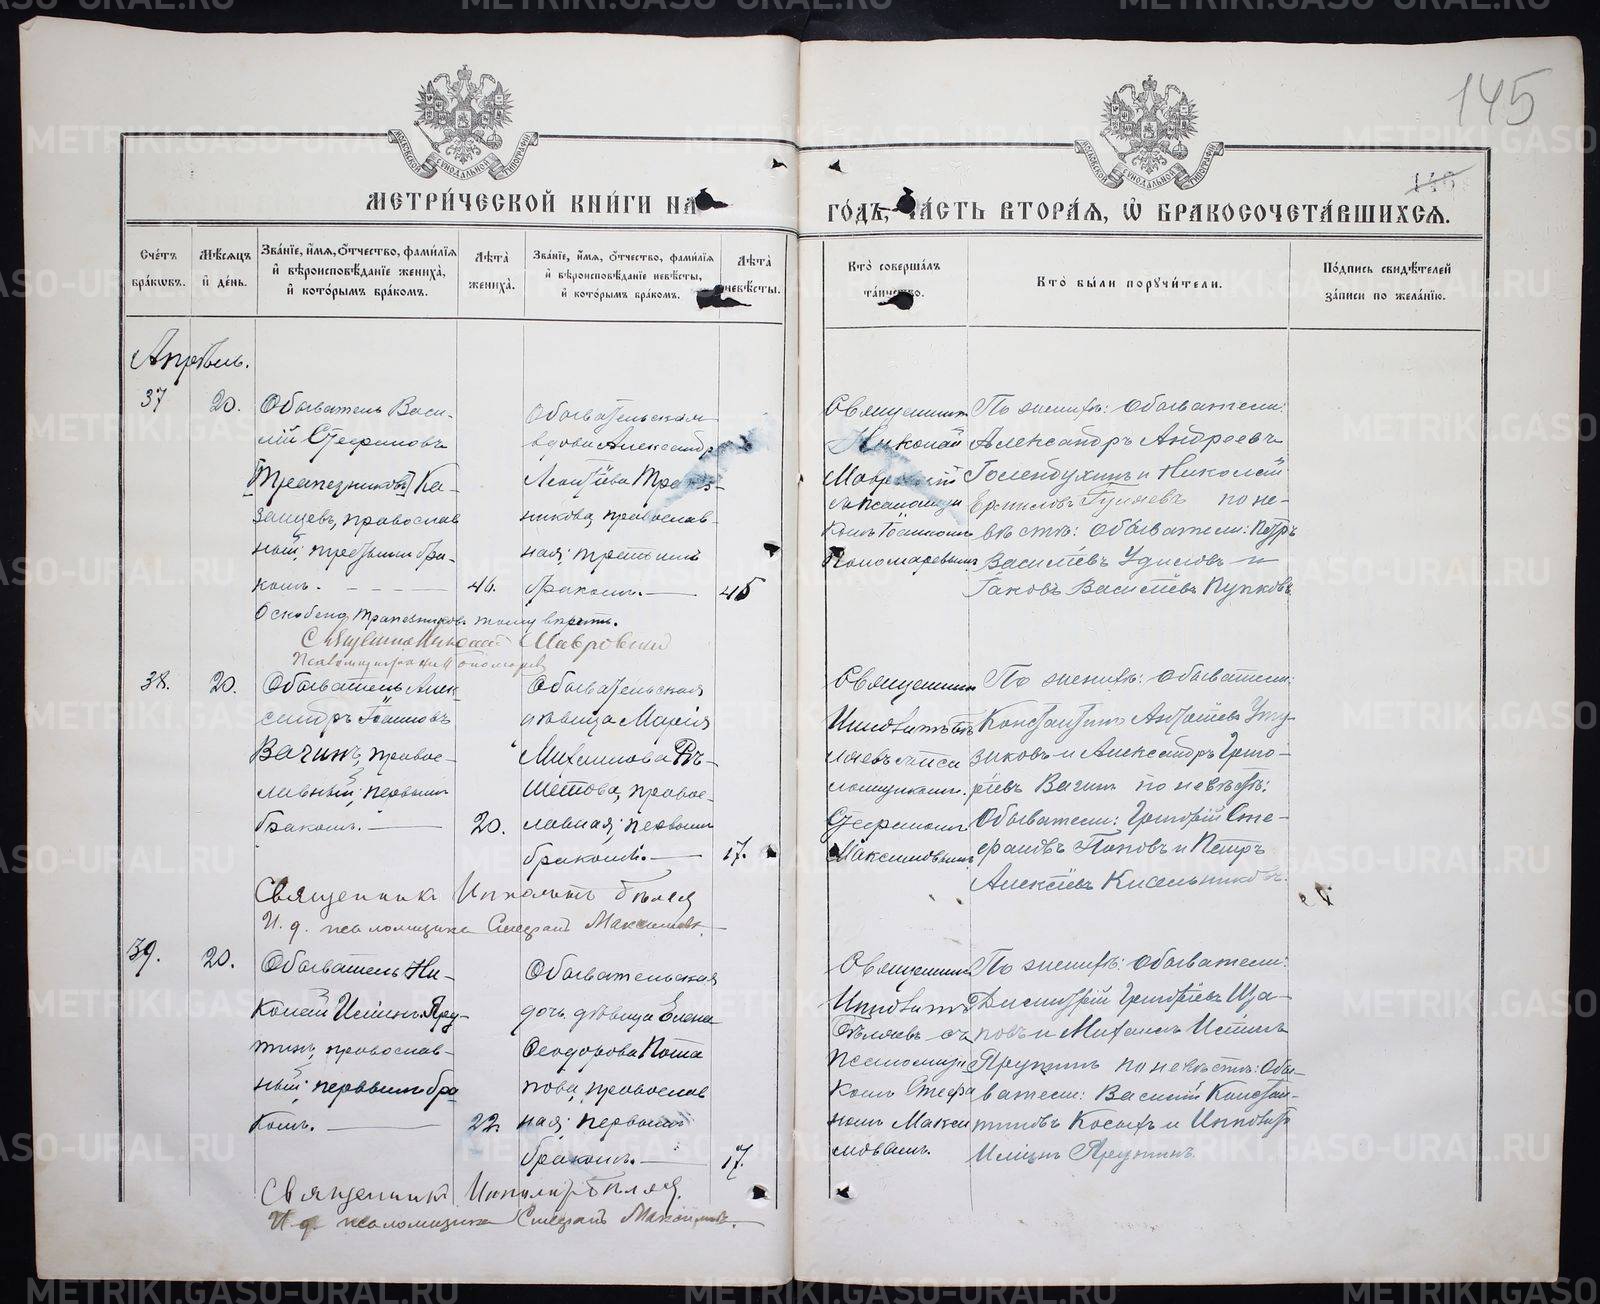 145
146
МЕТРИ́ЧЕСКОЙ КНИ́ГИ НА
ГО́ДЪ, ЧА́СТЬ ВТОРА́Я, Ѡ҆ БРАКОСОЧЕТА́ВШИХСЯ.
Сче́тъ бра́кѡвъ.
Мѣ́сяцъ и҆ де́нь.
Зва́нїе, и҆́мя, ѻ҆́тчество, фами́лїя и҆ вѣроисповѣ́данїе жениха̀, и҆ кото́рымъ бра́комъ.
Лѣ́та жениха̀.
Зва́нїе, и҆́мя, ѻ҆́тчество, фами́лїя и҆ вѣроисповѣ́данїе невѣ́сты, и҆ кото́рымъ бра́комъ.
Лѣ́та невѣ́сты.
Кто̀ соверша́лъ та́инство.
Кто̀ бы́ли поручи́тели.
По́дпись свидѣ́телей за́писи по жела́нїю.
Апрѣль.
37
20.
Обыватель Васи-
лій Стефановъ
[Трапезниковъ] Ка-
занцевъ, православ
ный; третьимъ бра-
комъ.
46.
Обывательская
вдова Александр
Леонтіева Трапез-
никова, православ-
ная; третьимъ
бракомъ.
45
Священникъ
Николай
Мавровскій
псаломщи
комъ Іоанномъ
Пономаревымъ
По женихѣ: обыватели:
Александръ Андреевъ
Голендухинъ и Николай
Ермиловъ Гуляевъ по не-
вѣстѣ: обыватели: Петръ
Василіевъ Удиловъ и
Іаковъ Василіевъ Пупковъ
Оскоблено Трапезниковъ тому вѣрить.
Священникъ Николай Мавровский
Псаломщикъ Іоаннъ Пономарев
38.
20.
Обыватель Алек-
сандръ Іоанновъ
Вагинъ, правос-
лавный; первымъ
бракомъ.
20.
Обывательская
дѣвица Марія
Михаилова Рѣ-
шетова, правос-
лавная; первымъ
бракомъ.
17.
Священникъ
Стефаномъ
Максимовымъ
По женихѣ: обыватели:
зиковъ и Александръ Григо-
ріевъ Вагинъ по невѣстѣ:
Обыватели: Григорій Сте-
фановъ Поповъ и Петръ
Алексіевъ Кисельниковъ.
Священникъ Ипполитъ Бѣляев
И. д. псаломщика Стефанъ Максимовъ
39.
20.
Обыватель Ни-
колай
православ-
ный; первымъ бра
комъ.
22.
Обывательская
дочь дѣвица Елена
Ѳеодорова Пота
пова, православ
ная; первымъ
бракомъ.
17.
Священникъ
Ипполитъ
Бѣляевъ съ
псаломщи
комъ Стефа
номъ Макси
мовымъ.
По женихѣ: обыватели:
Димитрій Григоріевъ Ща-
повъ и Михаилъ
по невѣстѣ: Обы-
ватели: Василій Констан-
тиновъ Косыхъ и Ипполитъ
Священникъ Ипполитъ Бѣляев.
И. д. псаломщика Стефанъ Максимовъ.
METRIKI.GASO-URAL.RU